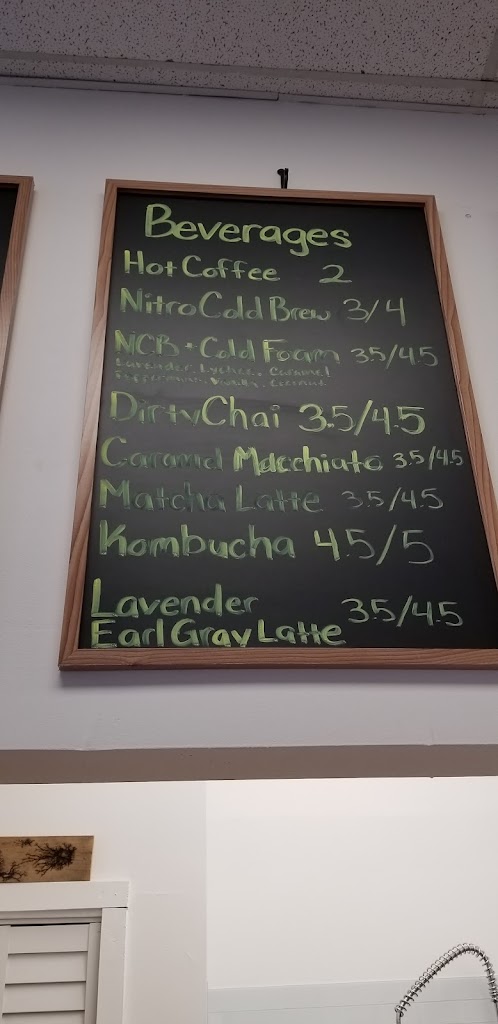 Beverages
Hot Coffee 2
Nitro Cold Brew 3/4
NCB + Cold Foam 3.5/4.5
Lavender, Lychee, Caramel
Peppermint, Vanilla, Coconut
Dirty Chai 3.5/4.5
Caramel Macchiato 3.5/4.5
Matcha Latte 3.5/4.5
Kombucha 4.5/5
Lavender 3.5/4.5
Earl Gray Latte